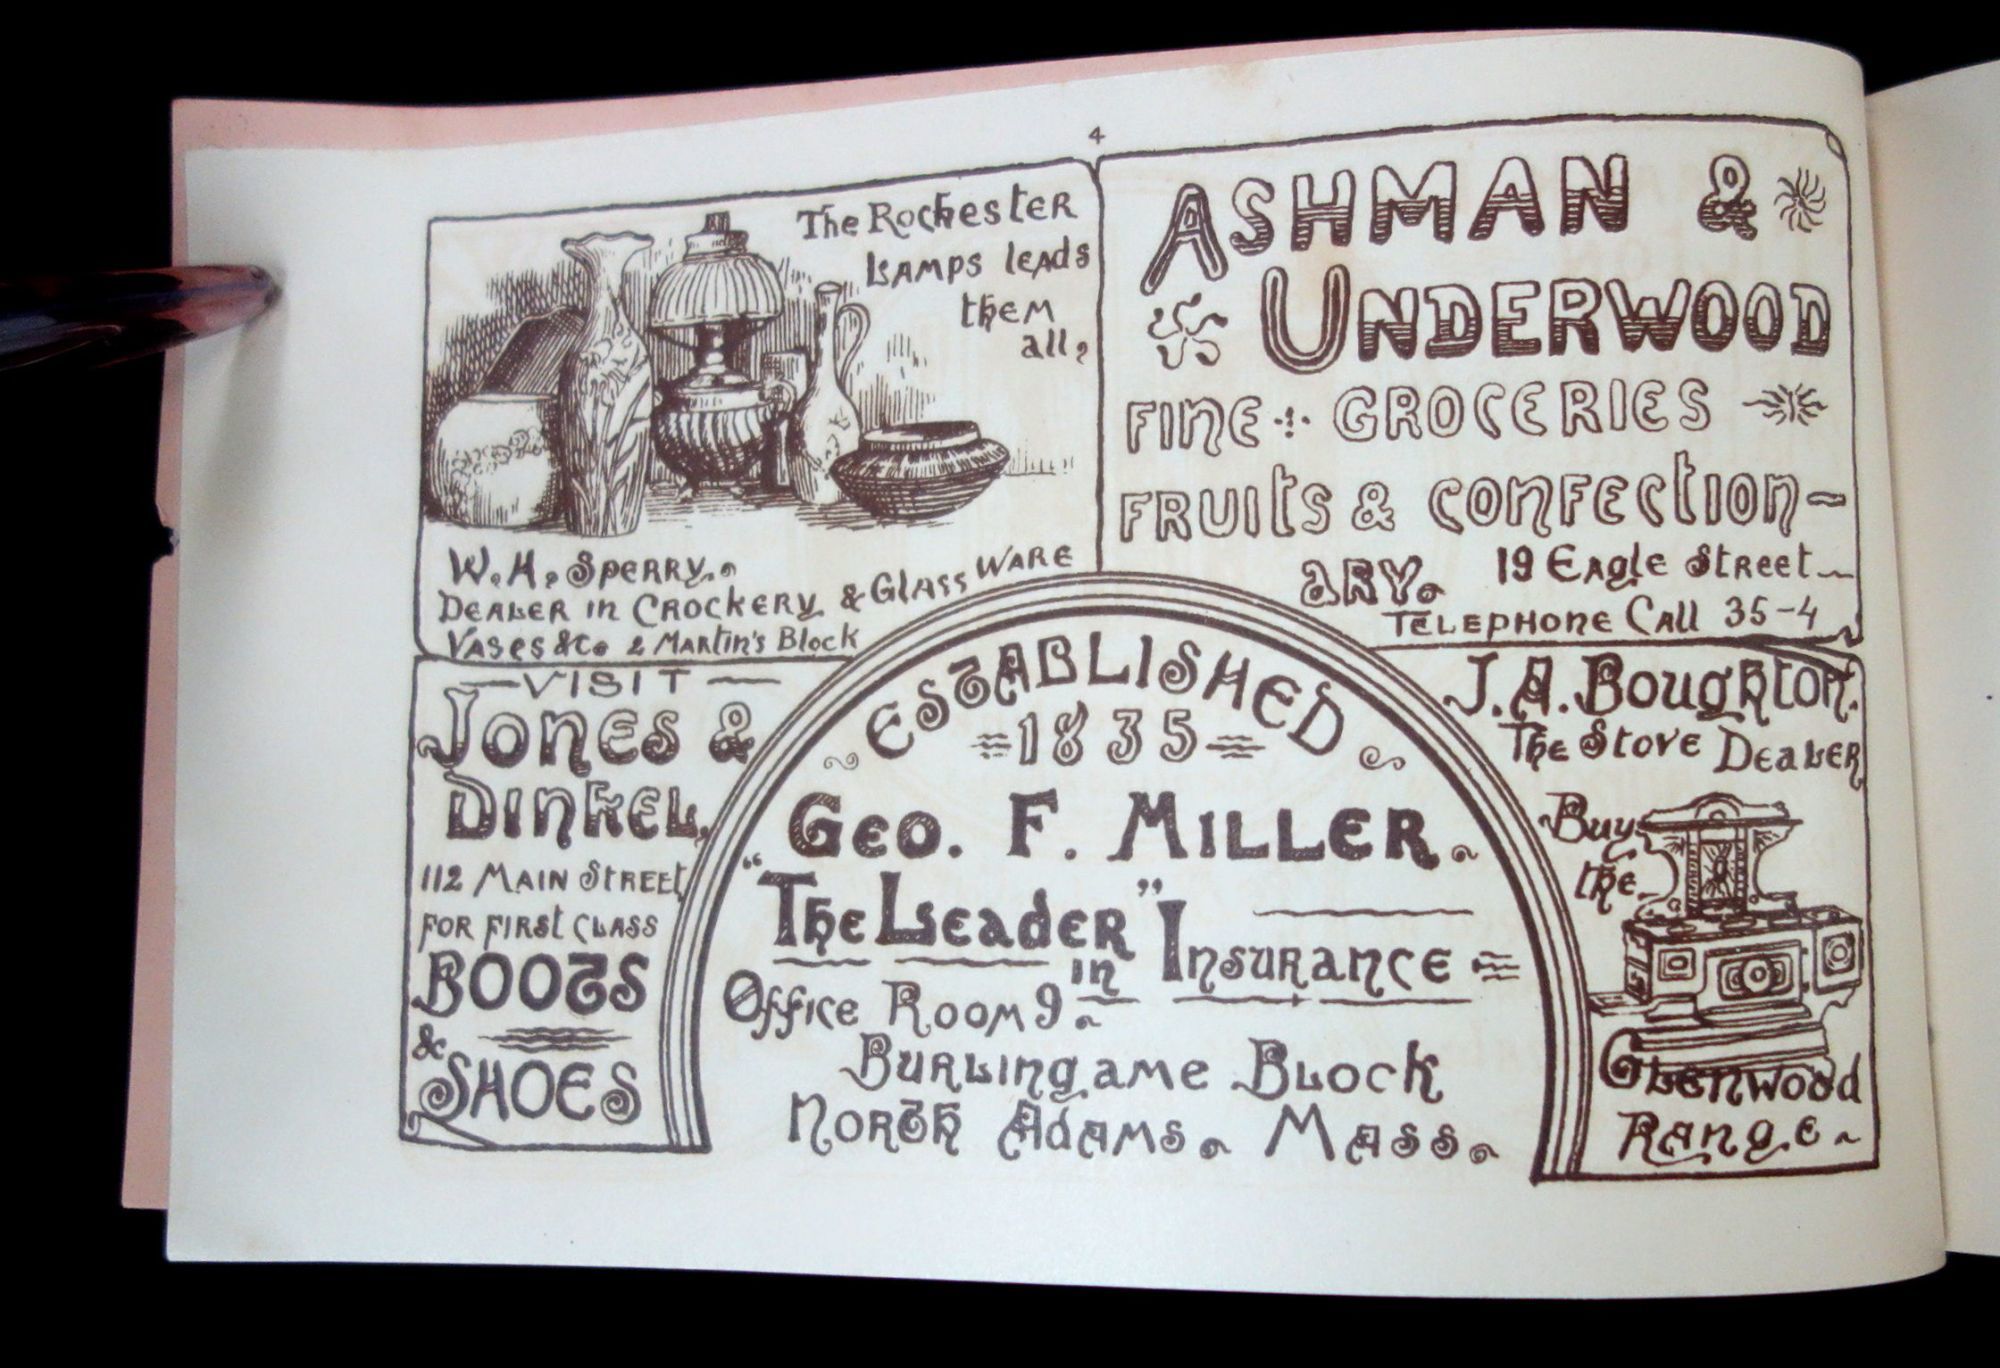 4
The Rochester
Lamps leads
them
all,
W. H. Sperry.
Dealer in Crockery & Glass Ware
Vases &Co 2 Martin's Block
ASHMAN &
UNDERWOOD
FINE GROCERIES
FRUITS & CONFECTION-
ARY. 19 Eagle Street
Telephone Call 35-4
VISIT
Jones &
Dinkel,
112 Main Street
for first class
BOOTS
&
SHOES
ESTABLISHED
1835
Geo. F. Miller.
"The Leader"
in Insurance
Office Room 9.
Burlingame Block
North Adams. Mass.
J. A. Boughton.
The Stove Dealer
Buy
the
Glenwood
Range.